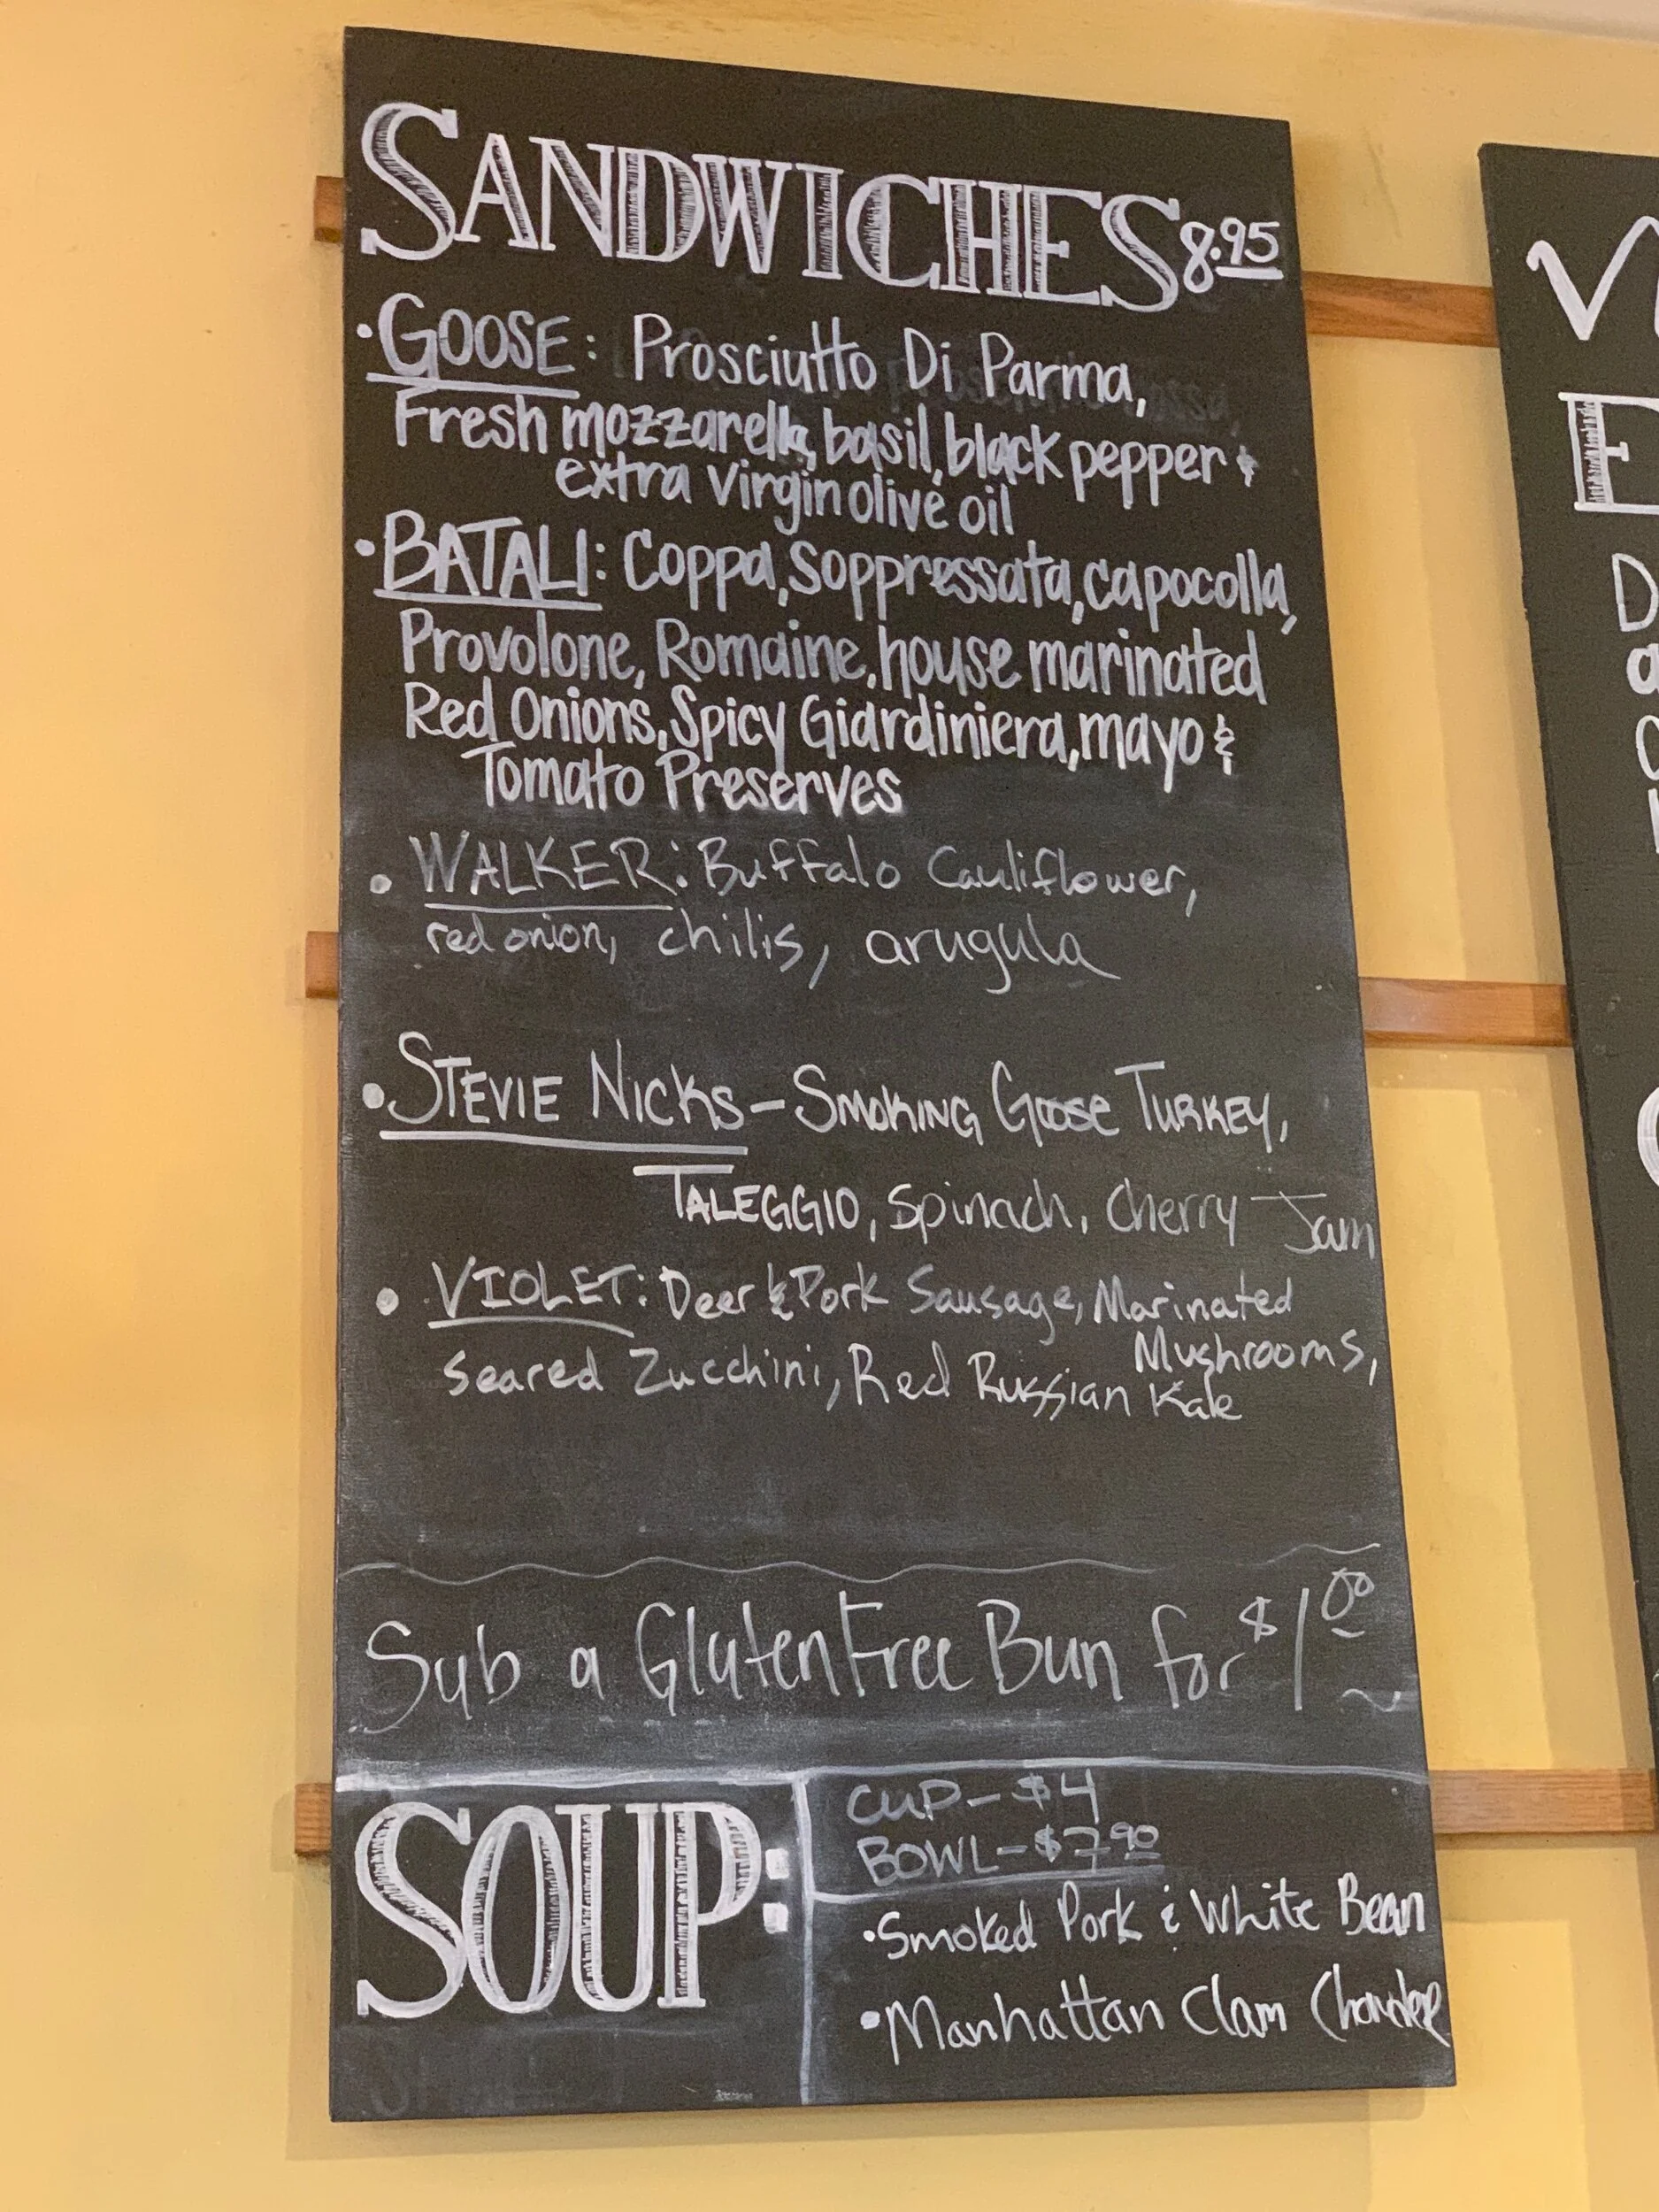 SANDWICHES 8.95
• GOOSE: Prosciutto Di Parma,
Fresh mozzarella, basil, black pepper &
extra virgin olive oil
• BATALI: Coppa, Soppressata, capocolla,
Provolone, Romaine, house marinated
Red Onions, Spicy Giardiniera, mayo &
Tomato Preserves
• WALKER: Buffalo Cauliflower,
red onion, chilis, arugula
• STEVIE NICKS – SMOKING GOOSE TURKEY,
TALEGGIO, Spinach, Cherry Jam
• VIOLET: Deer & Pork Sausage, Marinated
Mushrooms,
Seared Zucchini, Red Russian Kale
Sub a Gluten Free Bun for $1.00
SOUP:
CUP – $4
BOWL – $7.90
• Smoked Pork & White Bean
• Manhattan Clam Chowder